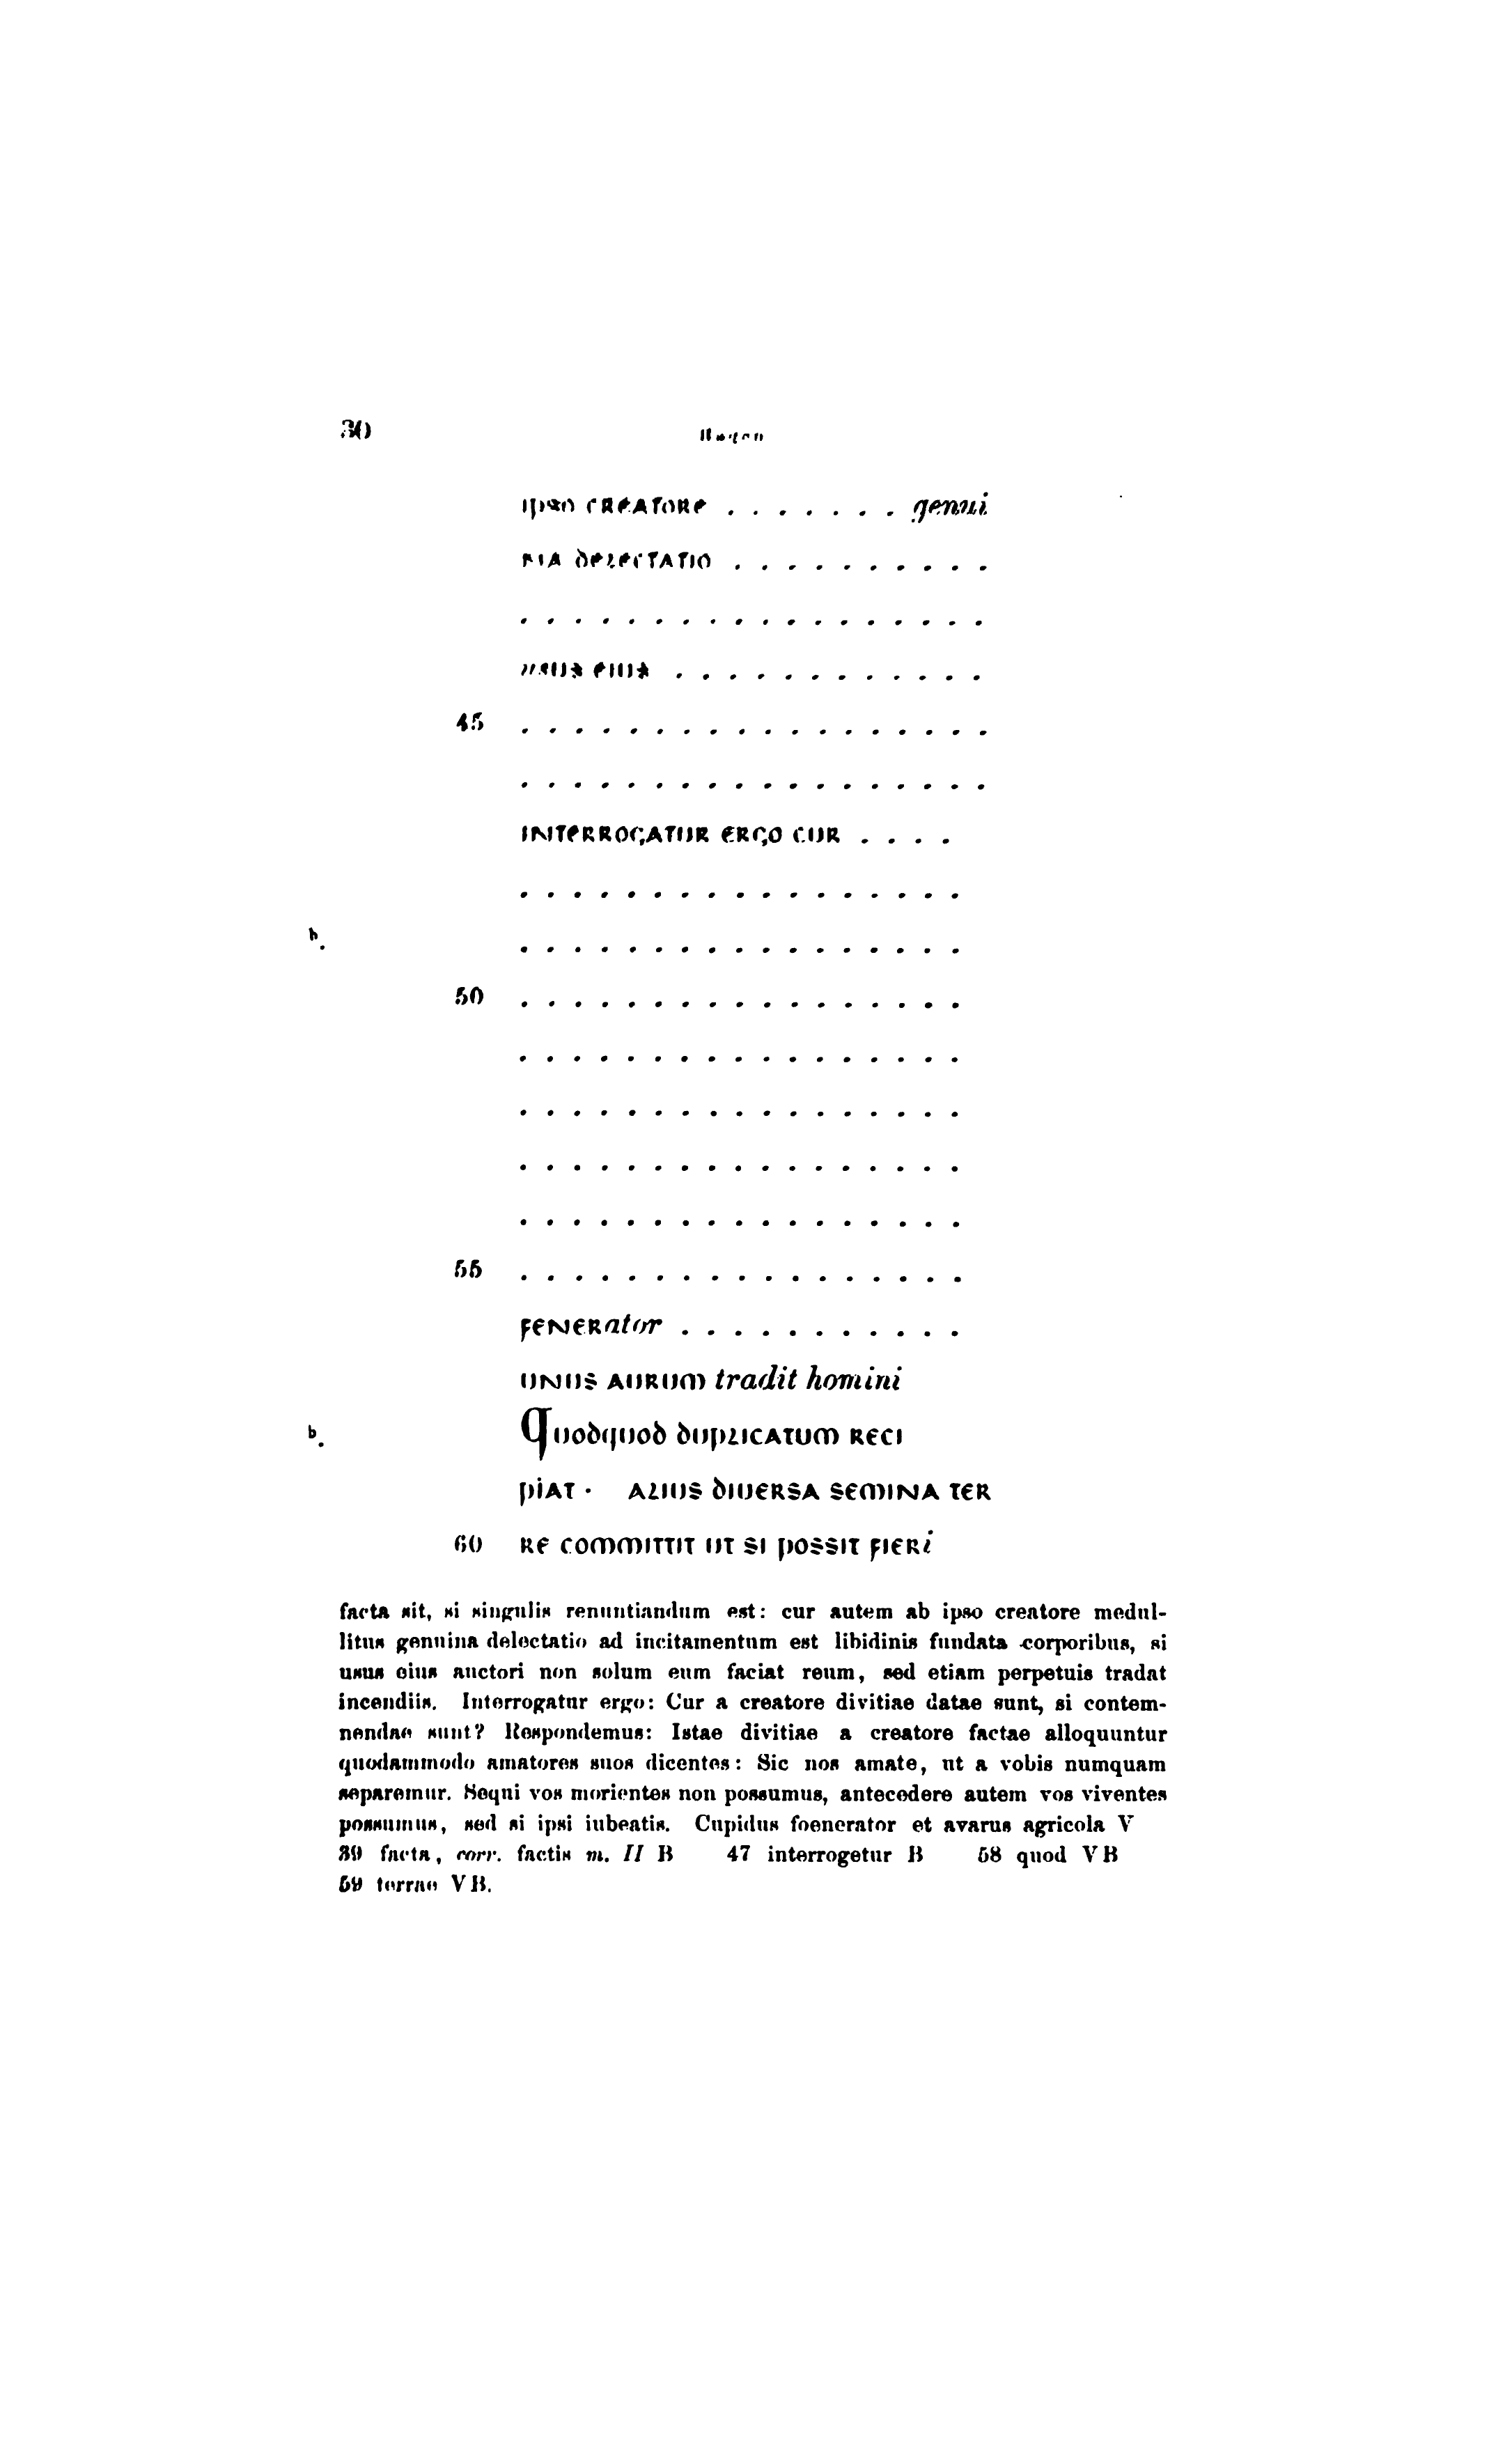 30 Hagen
ipso CREATORE . . . . . . . genui
NA delectatio . . . . . . . . . .
. . . . . . . . . . . . . . . . . .
usus eius . . . . . . . . . . . .
45 . . . . . . . . . . . . . . . . . .
. . . . . . . . . . . . . . . . . .
INTERROGATUR ERGO CUR . . . .
. . . . . . . . . . . . . . . . .
b. . . . . . . . . . . . . . . . . .
50 . . . . . . . . . . . . . . . . .
. . . . . . . . . . . . . . . . .
. . . . . . . . . . . . . . . . .
. . . . . . . . . . . . . . . . .
. . . . . . . . . . . . . . . . .
55 . . . . . . . . . . . . . . . . .
FENERator . . . . . . . . . . .
UNUS AURUM tradit homini
b. Quodquod duplicatum RECI
piAT · ALIUS diUERSA SEMINA TER
60 RE COMMITTIT UT SI POSSIT FIERi
facta sit, si singulis renuntiandum est: cur autem ab ipso creatore medul-
litus genuina delectatio ad incitamentum est libidinis fundata corporibus, si
usus eius auctori non solum eum faciat reum, sed etiam perpetuis tradat
incendiis. Interrogatur ergo: Cur a creatore divitiae datae sunt, si contem-
nendae sunt? Respondemus: Istae divitiae a creatore factae alloquuntur
quodammodo amatores suos dicentes: Sic nos amate, ut a vobis numquam
separemur. Sequi vos morientes non possumus, antecedere autem vos viventes
possumus, sed si ipsi iubeatis. Cupidus foenerator et avarus agricola V
39 facta, corr. factis m. II B 47 interrogetur B 58 quod VB
59 terrae VB.